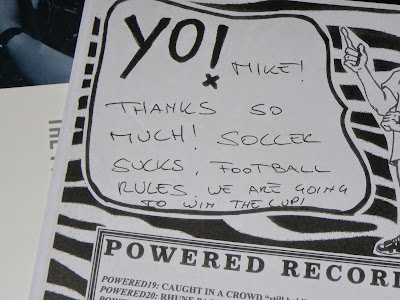 YO!
MIKE!
THANKS SO
MUCH! SOCCER
SUCKS, FOOTBALL
RULES. WE ARE GOING
TO WIN THE CUP!
POWERED RECOR
POWERED19: CAUGHT IN A CROWD "still
POWERED20: RHUNE